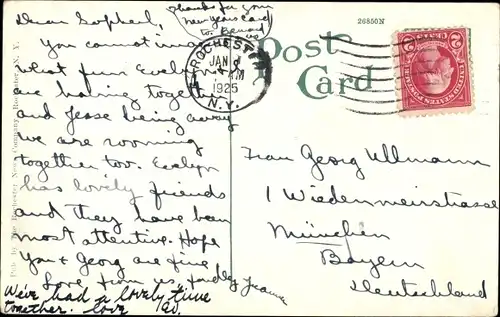 Thanks for your
new years card
to Bernard
& us
26850N
Dear Sopherl,
You cannot imagine
what fun Evelyn & I
are having together
and Jesse being away
we are rooming
together too. Evelyn
has lovely friends
and they have been
most attentive. Hope
You & Georg are fine
Love from us,
We've had a lovely time
together. Love
ROCHESTER
JAN
AM
1925
N.Y.
Post
Card
UNITED STATES POSTAGE
2 2
Frau Georg Ullmann
1 Wiedenmeierstrasse
München
Bayern
Deutschland
Pub. by The Rochester News Company, Rochester, N. Y.